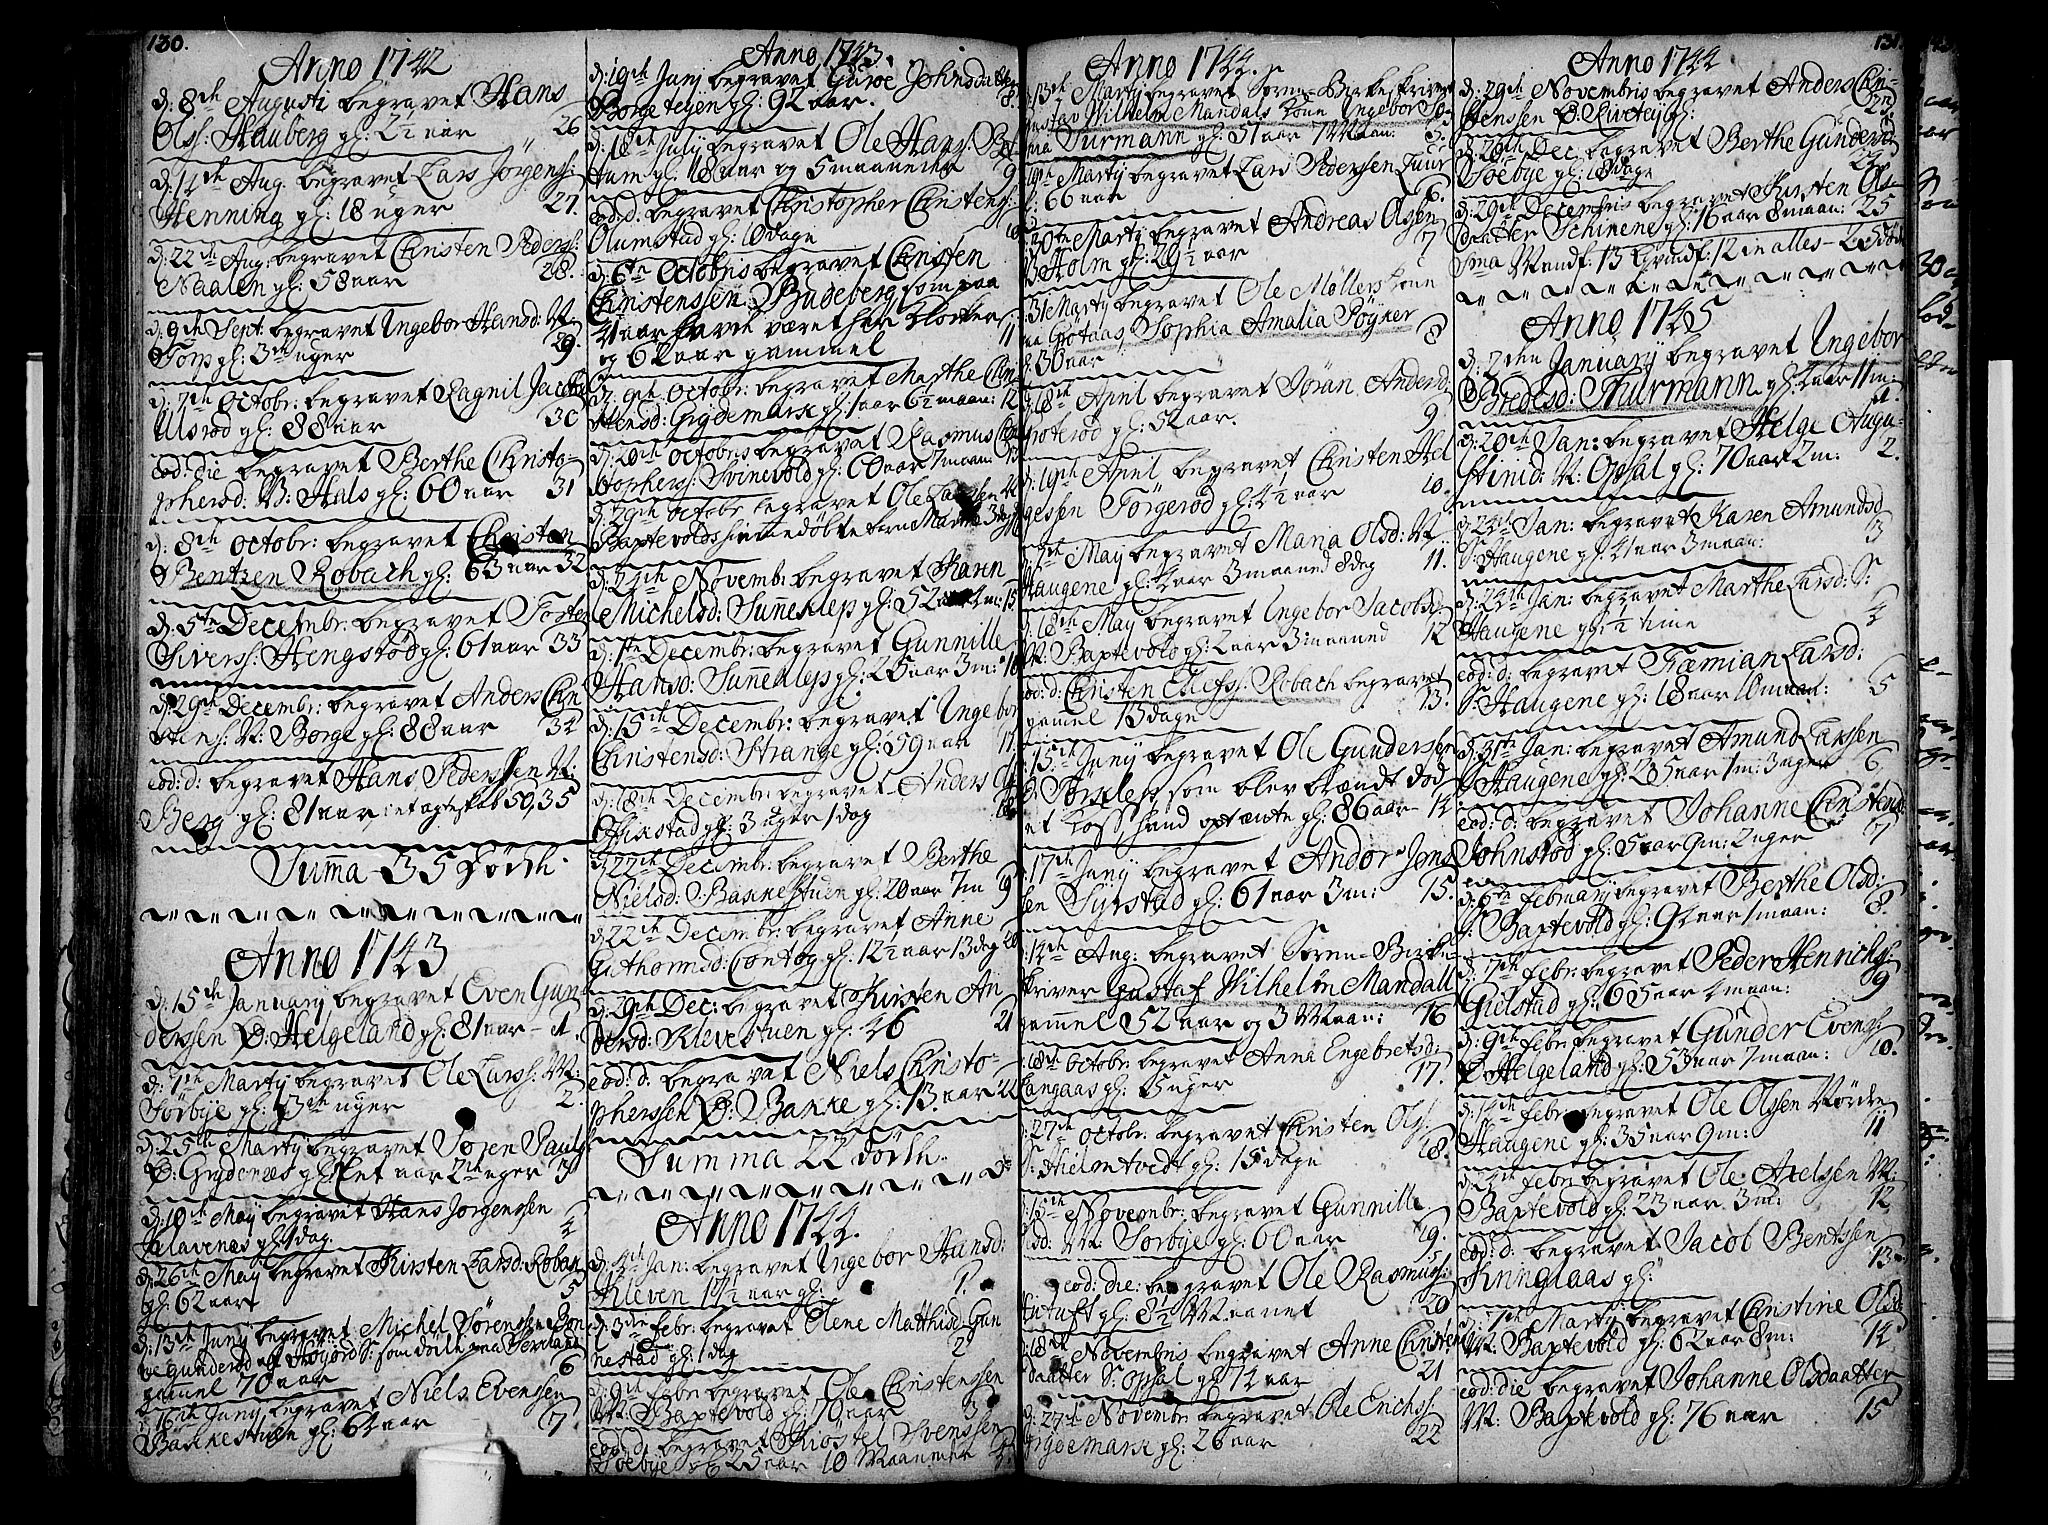 130.
Anno 1742
d: 8th Augusti begravet Hans
Olss: Hauberg gl: 2½ aar 26
d: 14th Aug. begravet Lars Jörgenss:
Henning gl: 18 uger 27.
d: 22th Aug: begravet Christen Pederss:
Naalen gl: 58 aar 28.
d: 9th Sept: begravet Ingebor Hansd: N:
Torp gl: 3 uger 29.
d: 7th Octobr: begravet Ragnil Jacobsd
Ulsrod gl: 88 aar 30
eod: die begravet Berthe Christo-
phersd: N: Hals gl: 60 aar 31
d: 8th Octobr: begravet Christen
Bentzen Robach gl: 63 aar 32
d: 5te Decembr: begravet Tosten
Siverss: Hengsrød gl: 61 aar 33
d: 29th Decembr: begravet Anders Chri
stens: N: Borge gl: 88 aar 34
eod: d: begravet Hans Pederssen N:
Berg gl: 81 aar, i et agteskab 50, 35
Suma 35 Dödh.
Anno 1743
d: 15th January begravet Even Gun
derssen Ø: Helgeland gl: 81 aar - 1.
d: 7th Martj begravet Ole Larss: N:
Sörbye gl: 3 uger 2.
d: 25th Martj begravet Sören Pauls
Ø: Grydenæs gl: Et aar 2 uger 3
d: 10th Maÿ begravet Hans Jorgenssen
Salavenæs gl: 1 dag. 4
d: 26th Maÿ begravet Kirsten Larsd: Roban
gl: 62 aar 5
d: 13th Junÿ begravet Michel Sörenssen
Gunderød af Höijord S: som döde paa
gamel 70 aar 6
d: 16th Junÿ begravet Niels Evenssen
Backestuen gl: 64 aar 7.
Anno 1743.
d: 19th Junj begravet Guroe Johnsdatter
Borgeteijen gl: 92 aar. 8.
d: 18th Julÿ begravet Ole Hans: Be
rum gl: 18 aar og 5 maaneder 9
eod: d: begravet Christopher Christens:
Olumstad gl: 10 dage 10
d: 6te Octobris begravet Christen
Christenssen Budeberg som paa
41 aar havde været her klocker
og 62 aar gammel 11
d: 9th Octobr: begravet Marthe Chri-
stensd: Grydemark gl: 1 aar 6½ maan: 12
d: 20th Octobris begravet Rasmus Chri
stopherss: Svinevold gl: 60 aar 7 maan: 13
d: 29th Octobr begravet Ole Larssen
Baptevolds hiemedöbte barn Marthe 3 dage 14
d: 24th Novembr: begravet Karen
Michelsd: Sunneklep gl: 52 aar 2 m: 15
d: 1te Decembr: begravet Gunnille
Hansd: Sunneklep gl: 25 aar 3 m: 16
d: 15th Decembr: begravet Ingebor
Christensd: Strange gl: 59 aar 17
d: 18th Decembr: begravet Anders
Offixstad gl: 3 uger 1 dag 18
d: 22th Decembr: begravet Berthe
Nielsd: Backestuen gl: 20 aar 7 m 19
d: 22th Decembr: begravet Anne
Guthormsd: Contog gl: 12½ aar 13 dag 20
d: 29th Dec: begravet Kirsten An
dersd: Klevestuen gl: 46 21
eod: d: begravet Niels Christo-
pherssen Ø: Bakke gl: 13 aar 22
Summa 22 dödh.
Anno 1744.
d: 4th Jan: begravet Ingebor Hansd:
Kleven 1½ aar gl: 1.
d: 3die Febr: begravet Olene Matthisd: Gun
nestad gl: 1 dag 2
d: 9th Febr: begravet Ole Christenssen
N: Baptevold gl: 70 aar 3
eod: d: begravet Kiostel Svenssen
Soebye gl: 25 aar 10 Maaneder 4.
Anno 1744.
d: 13th Martj begravet Soren-Birkeskriver
Gustav Wilhelm Mandals Kone Ingebor So
phia Turmann gl: 51 aar 7 Maan: 5.
19th Martj begravet Lars Pedersen Fuur
gl: 66 aar 6.
d: 30te Martj begravet Andreas Olssen
B: Holm gl: 29½ aar 7
d: 31 Martj begravet Ole Møllers Kone
paa Grotaas, Sophia Amalia Pöyker
gl: 30 aar 8
d: 18th April begravet Jöran Andersd
Groteröd gl: 52 aar. 9
d: 19th April begravet Christen Hel
gessen Törgeröd gl: 4½ aar 10.
d: 7th May begravet Maria Olsd: N:
Haugene gl: 2 aar 3 maaned 8 dag 11.
d: 18th May begravet Ingebor Jacobsd:
N: Baptevold gl: 2 aar 3 maaned 12
eod: d: Christen Ellefss: Robach begravet
gamel 13 dage 13.
d: 15th Junÿ begravet Ole Gunderssen
Ø: som blev brændt död
gl: 86 aar- 14
17th Junÿ begravet Andor Jens
sen Syrstad gl: 61 aar 3 m: 15.
14th Aug: begravet Soren-Birke-
skriver Gustaf Wilhelm Mandall
gamel 52 aar og 3 Maan: 16
18th Octobr: begravet Anna Engebretsd:
Langaas gl: 5 uger 17.
d: 27th Octobr: begravet Christen Ols:
S: Hielmtvedt gl: 15 dage 18.
d: 15th Novembr: begravet Gunnille
Olsd: N: Sorbye gl: 60 aar 19.
eod: die: begravet Ole Rasmuss:
Tufft gl: 8½ Maanet 20
d: 18th Novembris begravet Anne Christens
daatter S: Opsal gl: 74 aar 21
d: 27th Novembr: begravet Ole Erichss:
Grydemark gl: 26 aar 22
131.
Anno 1744
d: 29th Novembris begravet Anders Chri-
stenssen Ø: gl: 23
d: 26th Dec begravet Berthe Gundersd
Soebye gl: 18 dage 24
d: 29th Decembris begravet Kirsten Ols-
daatter Schinene gl: 16 aar 8 maan: 25
Sma Mandk: 13 Qvindk: 12 in alles - 25 döde
Anno 1745
d: 2den Januarÿ begravet Ingebor
Bredesd: Thurmann gl: 4 aar 11 m: 1.
d: 20th Jan: begravet Helge Augu-
stinid: N: Opsal gl: 70 aar 2 m: 2.
d: 24th Jan: begravet Karen Amundsd
S: Haugene gl: 41 aar 3 maan: 3
d: 24th Jan: begravet Marthe Larsd: S:
Haugene gl: ½ time 4
eod: d: begravet Fæmian Larsd:
S: Haugene gl: 18 aar 10 maan: 5
d: 31th Jan: begravet Amund Larssen
S: Haugene gl: 25 aar 1 m: 3 uger 6
eod: d: begravet Johanne Christens
Johnsröd gl: 5 aar 9 m: 2 uger 7
d: 6th Februarÿ begravet Berthe Olsd:
S: Baptevold gl: 94 aar 1 maan: 8.
d: 7th Febr: begravet Peder Henrichs:
Gielstad gl: 65 aar 4 maan: 9
d: 9th Febr: begravet Gunder Evenss:
Ø: Helgeland gl: 53 aar 7 maan: 10.
d: 14th Febr: begravet Ole Olssen Nörde
Haugene gl: 35 aar 9 m: 11
d: 24th Febr: begravet Ole Axelssen N:
Baptevold gl: 23 aar 3 m: 12
eod: d: begravet Jacob Bentssen
Finngaas gl: 13
d: 7th Martj begravet Christine Olsd:
N: Baptevold gl: 62 aar 8 m: 14
eod: die begravet Johanne Olsdaatter
N: Baptevold gl: 76 aar 15